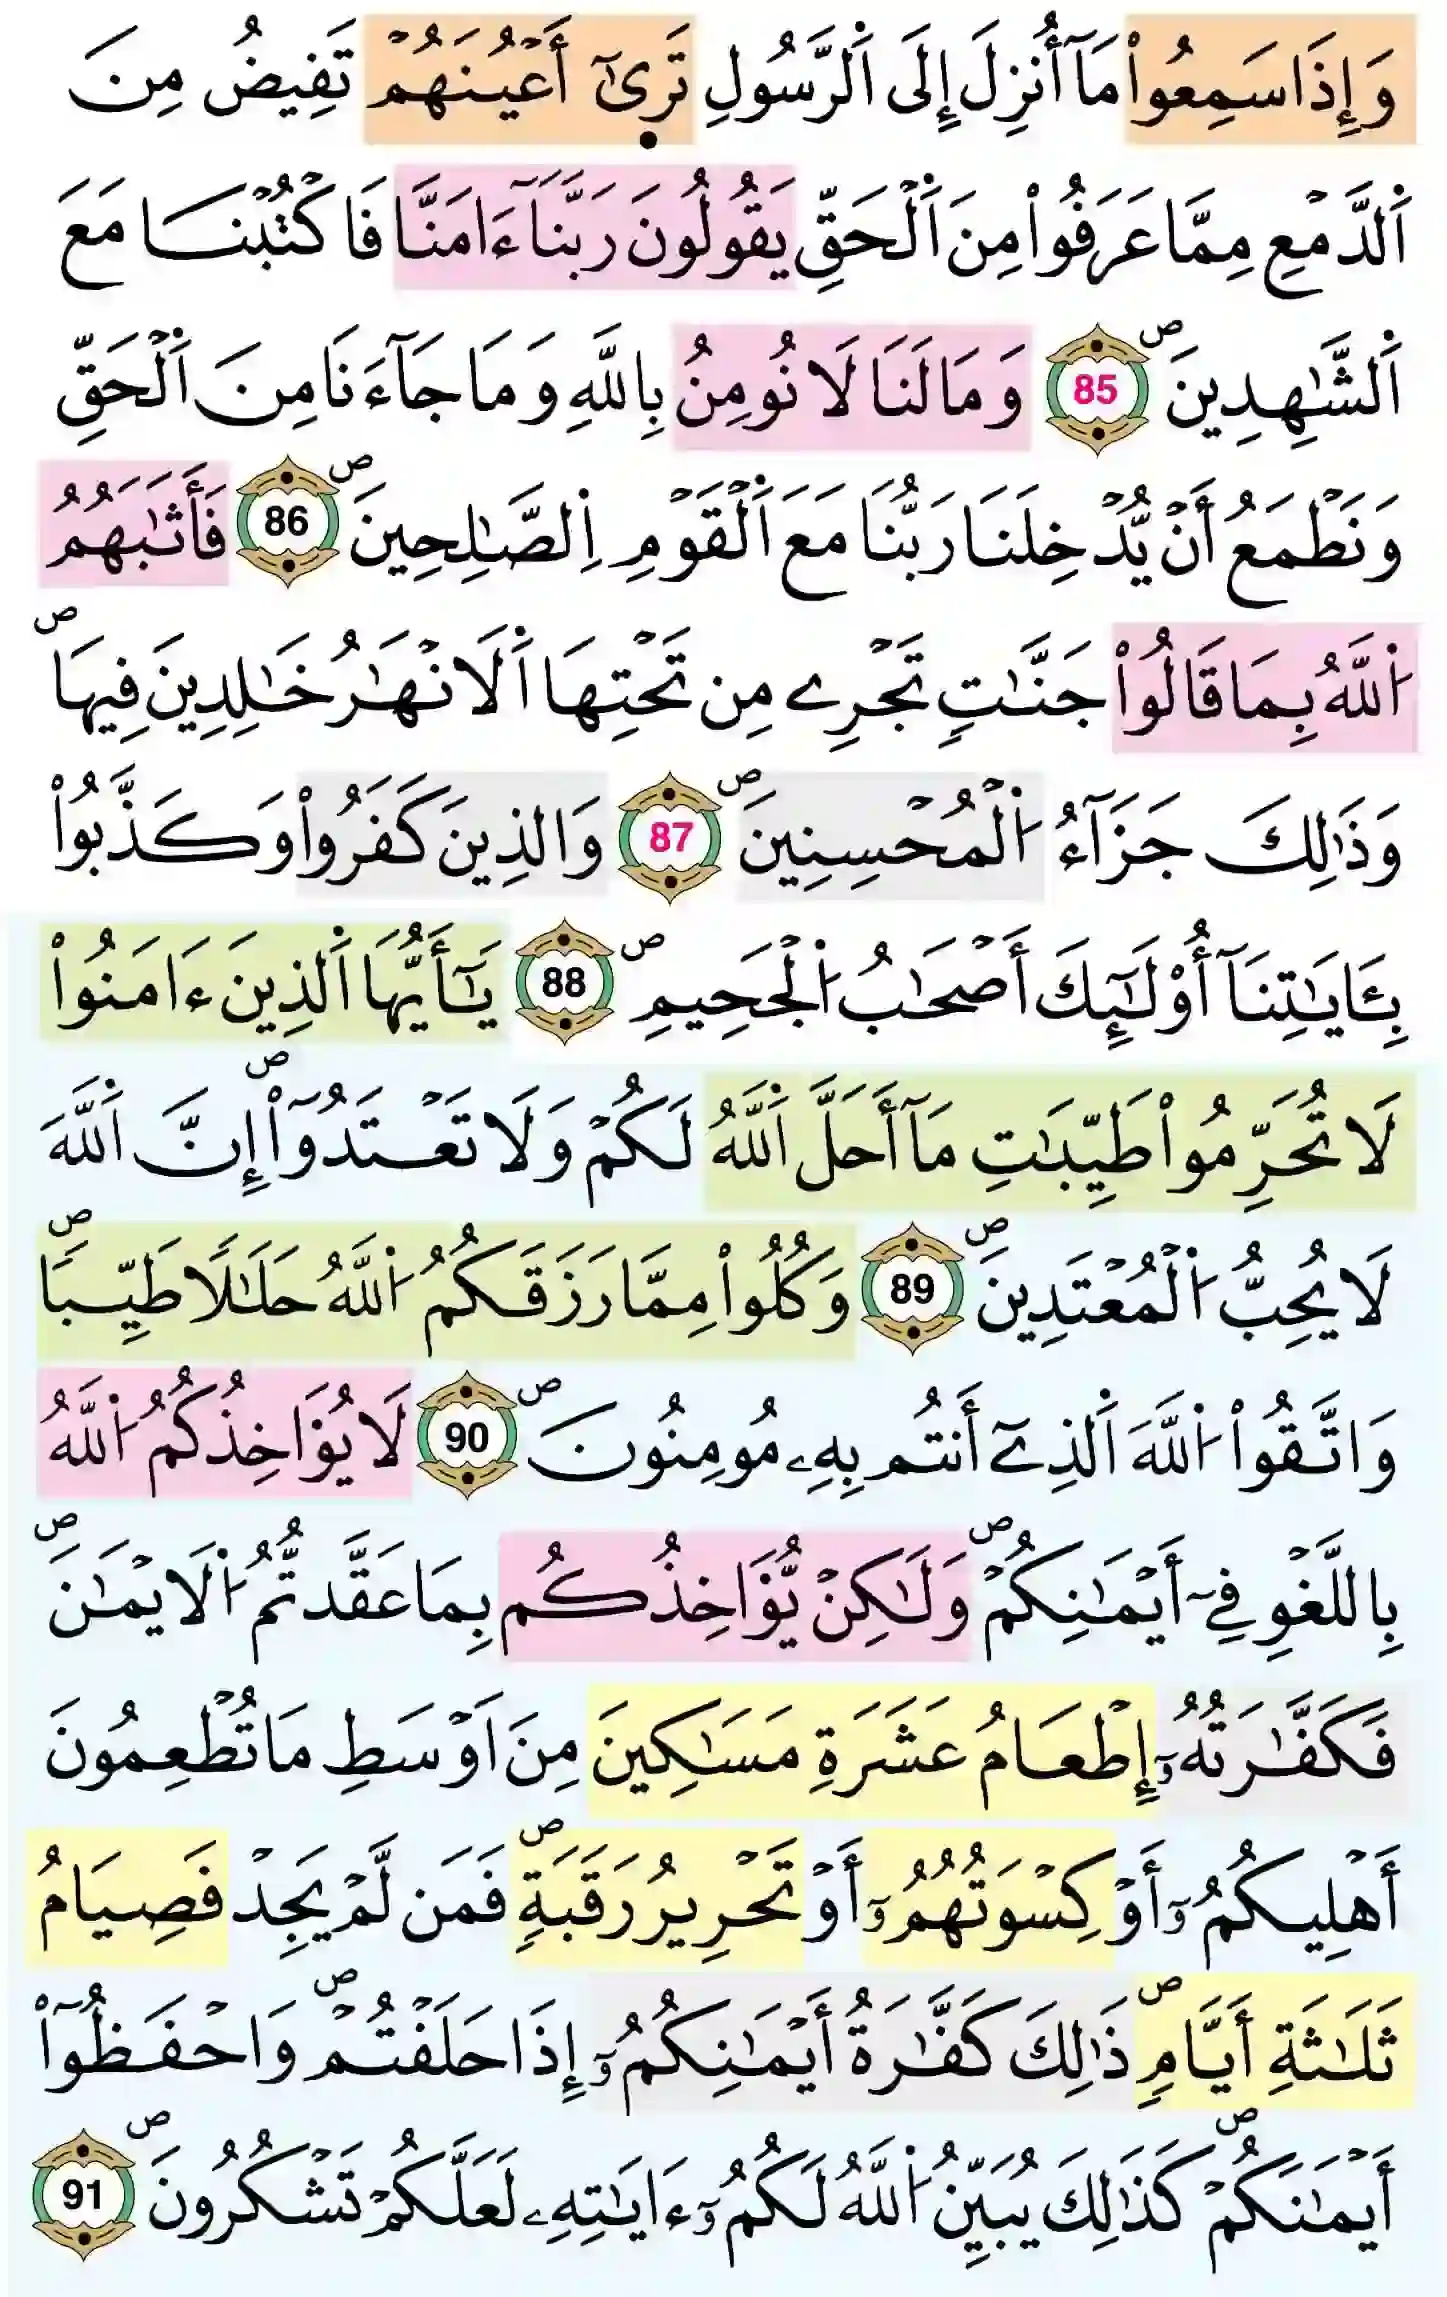 وَإِذَا سَمِعُواْ مَآ أُنزِلَ إِلَى اَ۬لرَّسُولِ تَر۪ىٰٓ أَعْيُنَهُمْ تَفِيضُ مِنَ
اَ۬لدَّمْعِ مِمَّا عَرَفُواْ مِنَ اَ۬لْحَقِّ يَقُولُونَ رَبَّنَآ ءَامَنَّا فَاكْتُبْنَا مَعَ
اَ۬لشَّٰهِدِينَۖ 85 وَمَا لَنَا لَا نُومِنُ بِاللَّهِ وَمَا جَآءَنَا مِنَ اَ۬لْحَقِّ
وَنَطْمَعُ أَنْ يُّدْخِلَنَا رَبُّنَا مَعَ اَ۬لْقَوْمِ اِ۬لصَّٰلِحِينَۖ 86 فَأَثَٰبَهُمُ
اُ۬للَّهُ بِمَا قَالُواْ جَنَّٰتٍ تَجْرِے مِن تَحْتِهَا اَ۬لَانْهَٰرُ خَٰلِدِينَ فِيهَاۖ
وَذَٰلِكَ جَزَآءُ اُ۬لْمُحْسِنِينَۖ 87 وَالذِينَ كَفَرُواْ وَكَذَّبُواْ
بِـَٔايَٰتِنَآ أُوْلَٰٓئِكَ أَصْحَٰبُ اُ۬لْجَحِيمِۖ 88 يَٰٓأَيُّهَا اَ۬لذِينَ ءَامَنُواْ
لَا تُحَرِّمُواْ طَيِّبَٰتِ مَآ أَحَلَّ اَ۬للَّهُ لَكُمْ وَلَا تَعْتَدُوٓاْۖ إِنَّ اَ۬للَّهَ
لَا يُحِبُّ اُ۬لْمُعْتَدِينَۖ 89 وَكُلُواْ مِمَّا رَزَقَكُمُ اُ۬للَّهُ حَلَٰلاً طَيِّباًۖ
وَاتَّقُواْ اُ۬للَّهَ اَ۬لذِےٓ أَنتُم بِهِۦ مُومِنُونَۖ 90 لَا يُؤَاخِذُكُمُ اُ۬للَّهُ
بِاللَّغْوِ فِےٓ أَيْمَٰنِكُمْۖ وَلَٰكِنْ يُّؤَاخِذُكُم بِمَا عَقَّدتُّمُ اُ۬لَايْمَٰنَۖ
فَكَفَّٰرَتُهُۥٓ إِطْعَامُ عَشَرَةِ مَسَٰكِينَ مِنَ اَوْسَطِ مَا تُطْعِمُونَ
أَهْلِيكُمُۥٓ أَوْ كِسْوَتُهُمُۥٓ أَوْ تَحْرِيرُ رَقَبَةٍۖ فَمَن لَّمْ يَجِدْ فَصِيَامُ
ثَلَٰثَةِ أَيَّامٍۖ ذَٰلِكَ كَفَّٰرَةُ أَيْمَٰنِكُمُۥٓ إِذَا حَلَفْتُمْۖ وَاحْفَظُوٓاْ
أَيْمَٰنَكُمْۖ كَذَٰلِكَ يُبَيِّنُ اُ۬للَّهُ لَكُمُۥٓ ءَايَٰتِهِۦ لَعَلَّكُمْ تَشْكُرُونَۖ 91